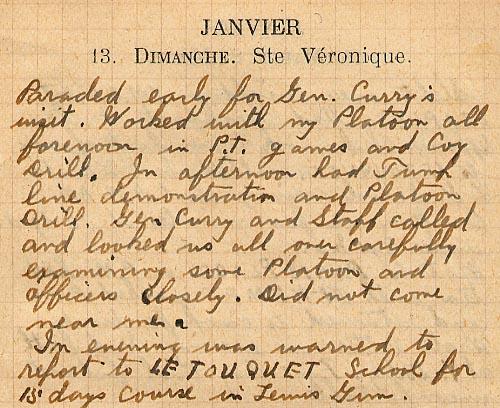 JANVIER
13. DIMANCHE. Ste Véronique.
Paraded early for Gen. Curry's
visit. Worked with my Platoon all
forenoon in P.t. games and Coy
Drill. In afternoon had Tump
line demonstration and Platoon
Drill. Gen Curry and Staff called
and looked us all over carefully
examining some Platoon and
officers closely. Did not come
near me.
In evening was warned to
report to LE TOUQUET School for
15 days Course in Lewis Gun.